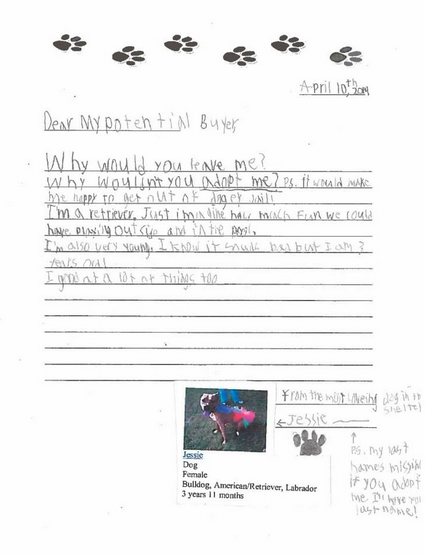 April 10th, 2019
Dear My potential Buyer
Why would you leave me?
Why wouldn't you adopt me? Ps. it would make
me happy to get out of dogey jail!
I'm a retriever. Just imagine how much Fun we could
have playing out side and in the pool.
I'm also very young. I know it sounds bad but I am 3
years old!
I good at a lot of things too
From the most loveing dog in the
shelter
Jessie
Ps. my last
names missing
if you adopt
me I'll have your
last name!
Jessie
Dog
Female
Bulldog, American/Retriever, Labrador
3 years 11 months